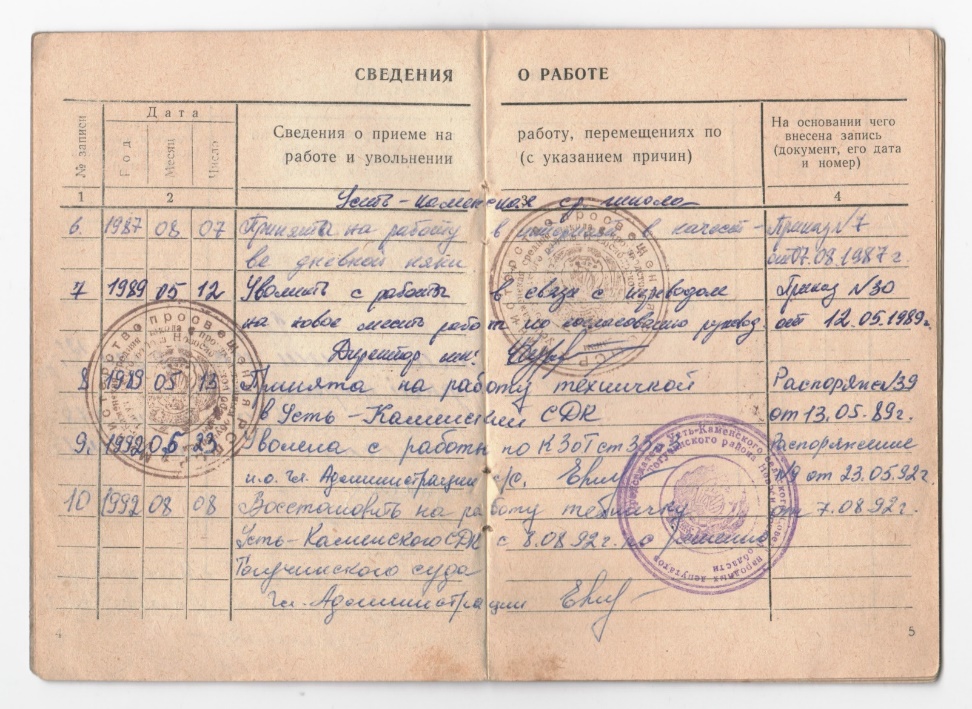 СВЕДЕНИЯ О РАБОТЕ
№ записи
Дата
Год
Месяц
Число
Сведения о приеме на работу, перемещениях по
работе и увольнении (с указанием причин)
На основании чего
внесена запись
(документ, его дата
и номер)
1 2 3 4
Усть-каменская ср. школа
6. 1987 08 07 Принята на работу в в качест- Приказ №7
ве дневной няни от 07.08.1987 г.
7 1989 05 12 Уволить с работы в связи с переводом Приказ №30
на новое место работ по согласованию руковод. от 12.05.1989г.
Директор шк.
8 1989 05 13 Принята на работу техничкой Распоряж №39
в Усть-Каменский СДК от 13.05.89г.
9. 1992 05 23 Уволена с работы по КЗоТ ст 33 Распоряжение
и.о. Гл. Администрации с/с. №9 от 23.05.92г.
10 1992 08 08 Восстановить на работу техничку от 7.08.92г.
Усть-Каменского СДК с 8.08.92г. по решению
Тогучинского суда
Гл. Администрации
4 5